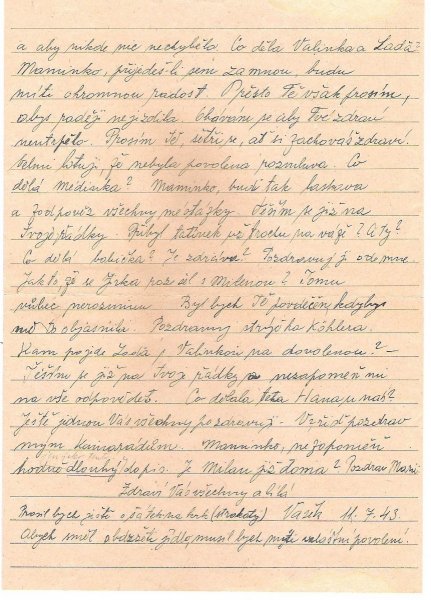 a aby nikde nic nechybělo. Co dělá Valinka a Láďa?
Maminko, přijedeš-li sem za mnou, budu
míti ohromnou radost. Přesto Tě však prosím,
abys raději nejezdila. Obávám se aby Tvé zdraví
neutrpělo. Prosím Tě, šetři se, ať si zachováš zdraví.
Velmi lituji, že nebyla povolena rozmluva. Co
dělá Medinka? Maminko, budiž tak laskava
a zodpověz všechny mé otázky. Těším se již na
Tvoje řádky. Přibyl tatínek už trochu na váze? A Ty?
Co dělá babička? Je zdráva? Pozdravuj ji ode mne.
Jak to že se Jirka rozešel s Milenou? Tomu
vůbec nerozumím. Byl bych Ti povděčen, kdybys
mě to objasnila. Pozdravuj strýčka Köhlera.
Kam pojede Láďa s Valinkou na dovolenou? -
Těším se již na Tvoje řádky a nezapomeň mi
na vše odpovědět. Co dělala teta Hana u nás?
Ještě jednou Vás všechny pozdravuji. Vyřiď pozdrav
mým kamarádům. Maminko, nezapomeň
hodně dlouhý dopis. Je Milan již doma? Pozdrav
Zdraví Vás všechny a líbá
Prosil bych ještě o šátek na krk (strakatý) Vašík 11.7.43.
Abych směl obdržeti jídlo, musil bych míti zvláštní povolení.